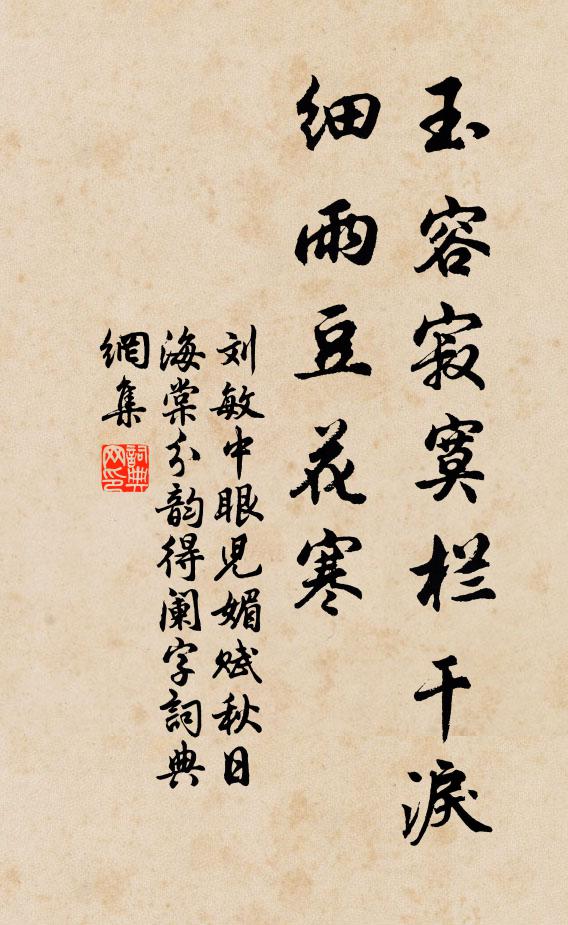 玉容寂寞栏干淚
细雨豆花寒
刘敏中眼児媚赋秋日
海棠分韵得阑字詞典
網集
詞典
网印